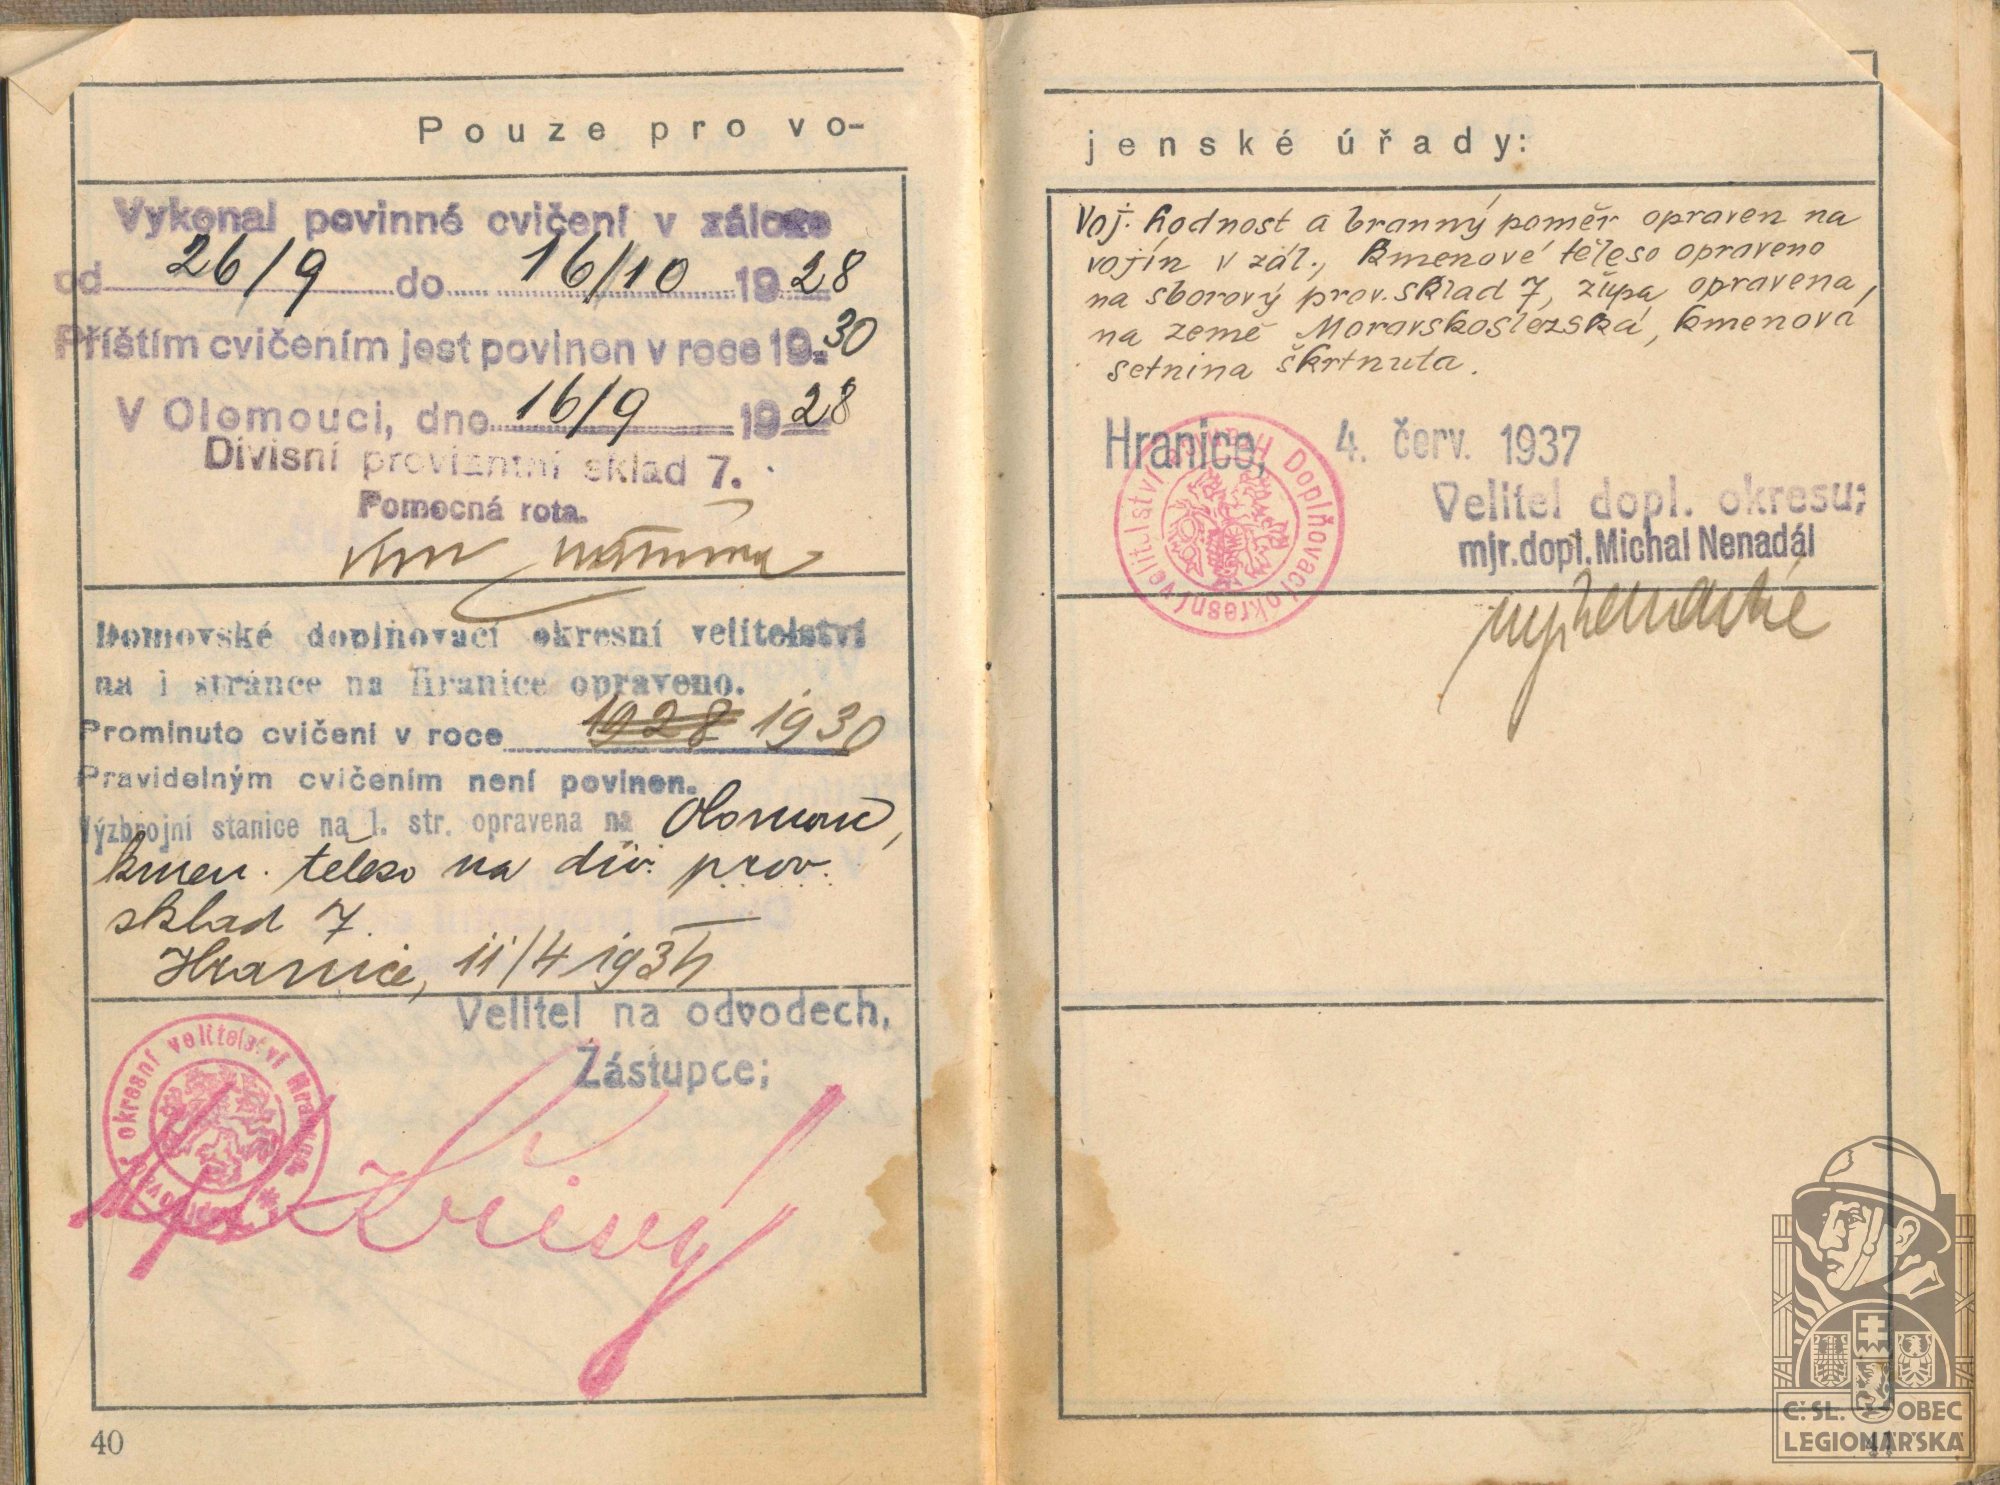 Pouze pro vo-
Vykonal povinné cvičení v záloze
od 26/9 do 16/10 1928
Příštím cvičením jest povinen v roce 1930
V Olomouci, dne 16/9 1928
Divisní proviantní sklad 7.
Pomocná rota.
Domovské doplňovací okresní velitelství
na 1 stránce na Hranice opraveno.
Prominuto cvičení v roce 1928 1930
Pravidelným cvičením není povinen.
Výzbrojní stanice na 1. str. opravena na Olomouc,
kmen. těleso na div. prov.
sklad 7.
Hranice, 11/4 1934
Velitel na odvodech,
Zástupce;
okresní velitelství Hranice
40
jenské úřady:
Voj. hodnost a branný poměr opraven na
vojín v zál., kmenové těleso opraveno
na sborový prov. sklad 7, župa opravena,
na země Moravskoslezská, kmenová
setnina škrtnuta.
Hranice, 4. červ. 1937
Doplňovací okresní velitelství Hranice
Velitel dopl. okresu;
mjr. dopl. Michal Nenadál
41
Č. SL. OBEC
LEGIONÁŘSKÁ